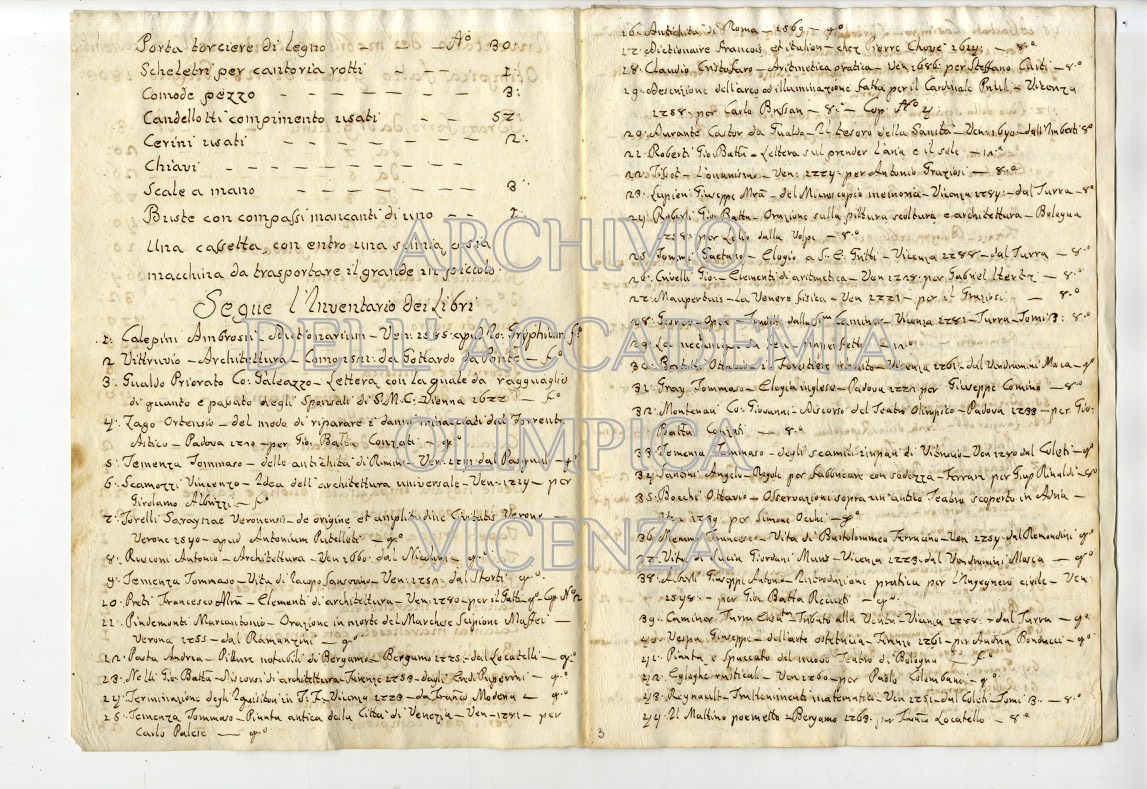 Porta torciere di legno - - - No 30:
Scheletri per cantoria rotti - - - 1:
Comode pezzo - - - - - - - 3:
Candellotti compimento usati - - 57:
Cerini usati - - - - - - - 2:
Chiavi - - - - - - -
Scale a mano - - - - - - 3:
Buste con compassi mancanti di uno - - 1:
Una cassetta, con entro una scimia, o sia
macchina da trasportare il grande in piccolo.
Segue l'Inventario dei Libri
1: Calepini Ambrosii - Dictionarium - Ven: apud Gryphium f.o
2 Vittruvio - Architettura - Como 1521: da Gottardo da Ponte - f.o
3: Gualdo Priorato Co: Galeazzo - Lettera con la quale da ragguaglio
di quanto è passato negli Sponsali di S. M. C. Vienna 1677 - f.o
4: Zago Ortensio - del modo di riparare i danni minacciati dal Torrente
Astico - Padova 1720 - per Gio: Batta Conzati - 4.o
5: Temenza Tommaso - delle antichità di Rimini - Ven: dal Pasquali - 4.o
6: Scamozzi Vincenzo - Idea dell'architettura universale - Ven: per
Girolamo Albrizzi - f.o
7: Torelli Saraynae Veronensis - de origine et amplitudine Civitatis Veronae -
Verone 1540 - apud Antonium Putelleti - 4.o
8: Rusconi Antonio - Architettura - Ven: 1660. dal Nicolini - 4.o
9: Temenza Tommaso - Vita di Jacopo Sansovino - Ven: 1752. dal Storti - 4.o
10: Preti Francesco Ma - Elementi di architettura - Ven: 1780 - per il Gatti - 4.o Cop: No 12
11: Pindemonti Marcantonio - Orazione in morte del Marchese Scipione Maffei -
Verona 1755 - dal Ramanzini - 4.o
12: Pasta Andrea - Pitture notabili di Bergamo - Bergamo 1775: dal Locatelli - 4.o
13: Nelli Gio: Batta - Discorsi di architettura - Firenze 1753 - dagli Eredi Paperini - 4.o
14: Terminazione degli Inquisitori in T. F. Vicenza 1773 - da Franco Modena - 4.o
15: Temenza Tommaso - Pianta antica della Città di Venezia - Ven: 1781 - per
Carlo Palese - 4.o
16: Antichità di Roma - 1569 - 4.o
17: Dictionaire Francois, et italien - chez Pierre Chouë - 8.o
18: Claudio Cristofaro - Aritmetica pratica - Ven: 1686: per Steffano Curti - 8.o
19: Descrizione dell'arco ed illuminazione fatta per il Cardinale Priuli - Vicenza
1758: per Carlo Bressan - 8.o - Cop: No 4:
20: Durante Castor da Gualdo - Il tesoro della Sanità - Ven: 1670 - dell'Imberti 8.o
21: Roberti Gio: Batta - Lettera sul prender l'aria e il sole - 12.o
22: Tissot - L'onanismo - Ven: 1774: per Antonio Graziosi - 8.o
23: Lupieri Giuseppe Ma - del Microscopio memoria - Vicenza 1784: dal Turra - 8.o
24: Roberti Gio: Batta - Orazione sulla pittura scoltura e architettura - Bologna
1758: per Lelio dalla Volpe - 8.o
25: Tommi Gaetano - Elogio a S. E. Gritti - Vicenza 1788 - dal Turra - 8.o
26: Crivelli Gio: - Elementi di aritmetica - Ven: 1728: per Gabriel Hertz - 8.o
27: Maupertuis - La Venere fisica - Ven: 1771 - per il Graziosi - 8.o
28: Opere dalla Caminer - Vicenza 1781 - Turra - Tomi 3: 8.o
29: La - 12.o
30: Ottavio Il Forestiere - Vicenza 1761: dal Vendramini Mosca - 8.o
31: Gray Tommaso - Elegia inglese - Padova 1772: per Giuseppe Comino - 8.o
32: Montenari Co: Giovanni - Discorso del Teatro Olimpico - Padova 1733 - per Gio:
Batta Conzati - 8.o
33: Temenza Tommaso - degli scamilli impari di Vitruvio - Ven: 1780 dal Coleti - 4.o
34: Sanzini Angelo - Regole per fabbricare con sodezza - Ferrara per Rinaldi - 4.o
35: Bocchi Ottavio - Osservazioni sopra un antico Teatro scoperto in Adria -
Ven: 1739: per Simone Occhi - 4.o
36: Memmo Francesco - Vita di Bartolommeo Ferracino - Ven: 1754: dal Remondini 4.o
37: Vita di Lucia Giordani Muro - Vicenza 1773. dal Vendramini Mosca - 4.o
38: Alberti Giuseppe Antonio - Instruzione pratica per l'Ingegnero civile - Ven:
1748: - per Gio: Batta Recurti - 4.o
39: Caminer Turra Elisabta - Tributo alla Verità - Vicenza 1788: dal Turra - 4.o
40: Vespa Giuseppe - dell'arte ostetricia - Firenze 1761 - per Andrea Bonducci - 4.o
41: Pianta e spaccato del nuovo Teatro di Bologna - f.o
42: Egloghe rusticali - Ven: 1760 - per Paolo Colombani - 4.o
43: Reynault - Trattenimenti matematici - Ven: 1751 - dal Coleti - Tomi 3: - 8.o
44: Il Mattino poemetto - Bergamo 1763: per Franco Locatello - 8.o
3
ARCHIVIO
DELL'ACCADEMIA
OLIMPICA
VICENZA